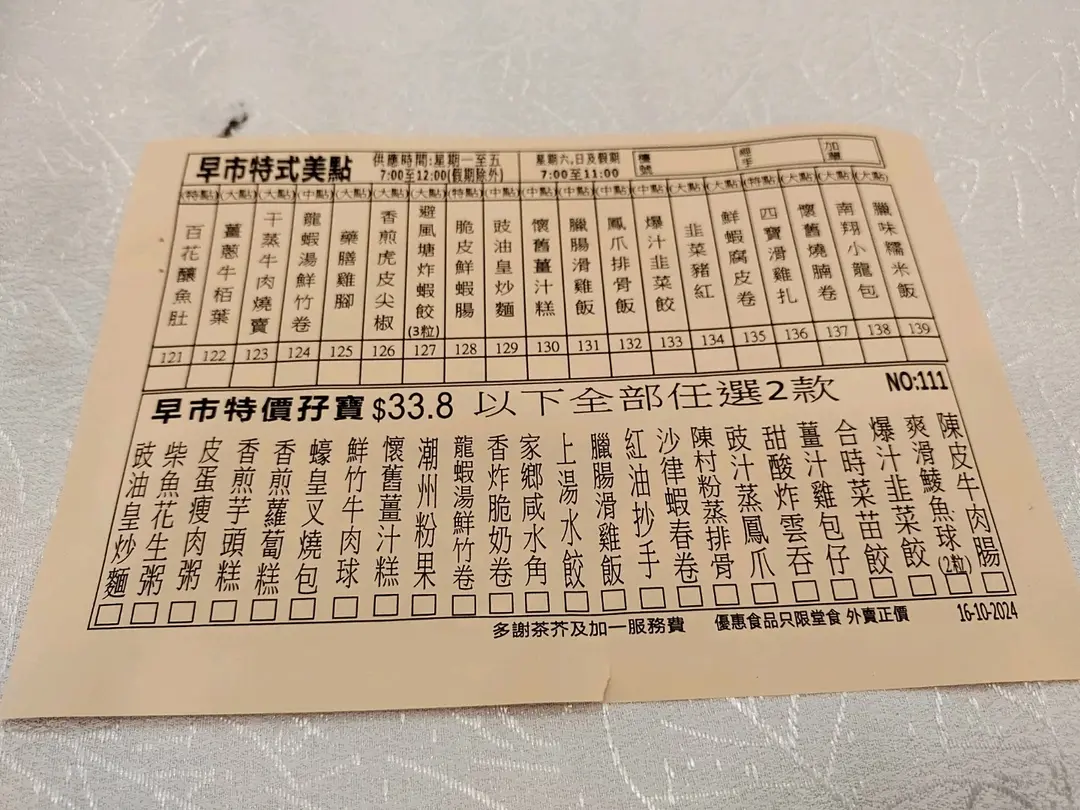 早市特式美點
供應時間:星期一至五
7:00至12:00(假期除外)
星期六,日及假期
7:00至11:00
檯號
經手
加單
(特點)
百花釀魚肚
121
(大點)
薑蔥牛栢葉
122
(大點)
干蒸牛肉燒賣
123
(中點)
龍蝦湯鮮竹卷
124
(大點)
藥膳雞腳
125
(大點)
香煎虎皮尖椒
126
(大點)
避風塘炸蝦餃
(3粒)
127
(特點)
脆皮鮮蝦腸
128
(中點)
豉油皇炒麵
129
(中點)
懷舊薑汁糕
130
(中點)
臘腸滑雞飯
131
(中點)
鳳爪排骨飯
132
(中點)
爆汁韭菜餃
133
(大點)
韭菜豬紅
134
(大點)
鮮蝦腐皮卷
135
(特點)
四寶滑雞扎
136
(大點)
懷舊燒腩卷
137
(大點)
南翔小龍包
138
(大點)
臘味糯米飯
139
早市特價孖寶 $33.8 以下全部任選2款
NO:111
豉油皇炒麵
柴魚花生粥
皮蛋瘦肉粥
香煎芋頭糕
香煎蘿蔔糕
蠔皇叉燒包
鮮竹牛肉球
懷舊薑汁糕
潮州粉果
龍蝦湯鮮竹卷
香炸脆奶卷
家鄉咸水角
上湯水餃
臘腸滑雞飯
紅油抄手
沙律蝦春卷
陳村粉蒸排骨
豉汁蒸鳳爪
甜酸炸雲吞
薑汁雞包仔
合時菜苗餃
爆汁韭菜餃
爽滑鯪魚球
(2粒)
陳皮牛肉腸
多謝茶芥及加一服務費
優惠食品只限堂食 外賣正價
16-10-2024